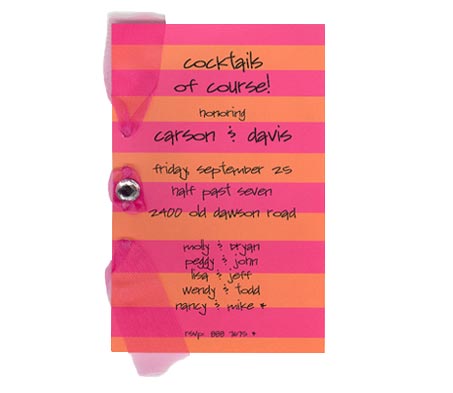 cocktails
of course!
honoring
carson & davis
friday, september 25
half past seven
2400 old dawson road
molly & bryan
peggy & john
lisa & jeff
wendy & todd
nancy & mike *
rsvp: 888 7675 *